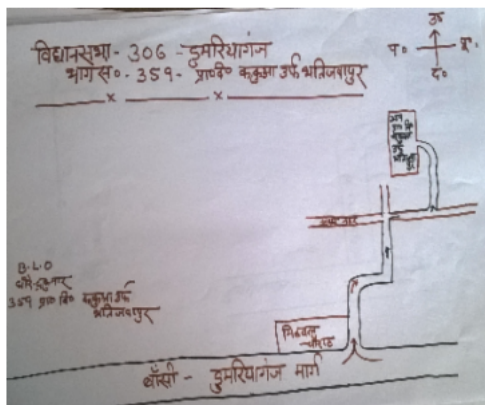 विधानसभा - 306 - डुमरियागंज
भाग सं० - 359 - प्रा०वि० ककुआ उर्फ भतिजवापुर
उ०
प०
पू०
द०
B.L.O
359 प्रा० वि० ककुआ उर्फ
भतिजवापुर
मिठवल
चौराहा
बाँसी - डुमरियागंज मार्ग